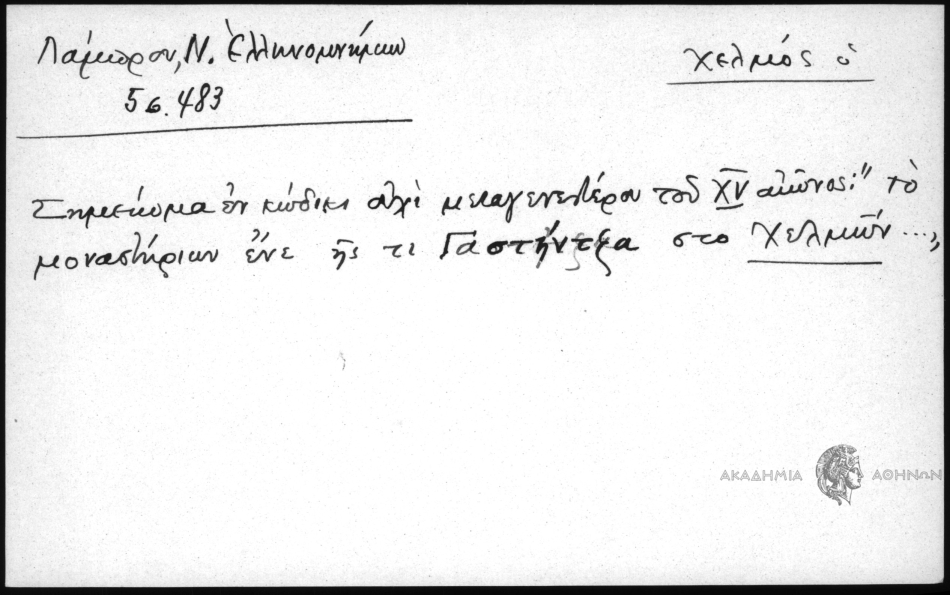 Λάμπρου, Ν. Ἑλληνομνήμων
5 σ. 483
Χελμός ὁ
Σημείωμα ἐν κώδικι οὐχὶ μεταγενεστέρου τοῦ XV αἰῶνος: " τὸ
μοναστήριων ἔνε ῆς τι Γαστήντζα στο Χελμῶν ...,
ΑΚΑΔΗΜΙΑ ΑΘΗΝΩΝ